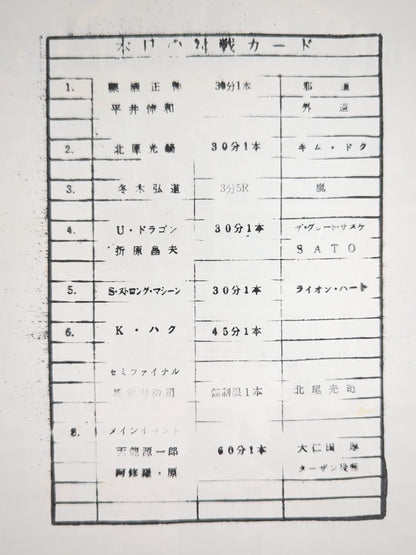 本日の対戦カード
1. 栗栖正伸 30分1本 邪道
平井伸和 外道
2. 北原光騎 30分1本 キム・ドク
3. 冬木弘道 3分5R 嵐
4. U・ドラゴン 30分1本 ザ・グレート・サスケ
折原昌夫 SATO
5. S・ストロング・マシーン 30分1本 ライオン・ハート
6. K・ハク 45分1本
セミファイナル
無制限1本 北尾光司
8. メインイベント
天龍源一郎 60分1本 大仁田厚
阿修羅・原 ターザン後藤